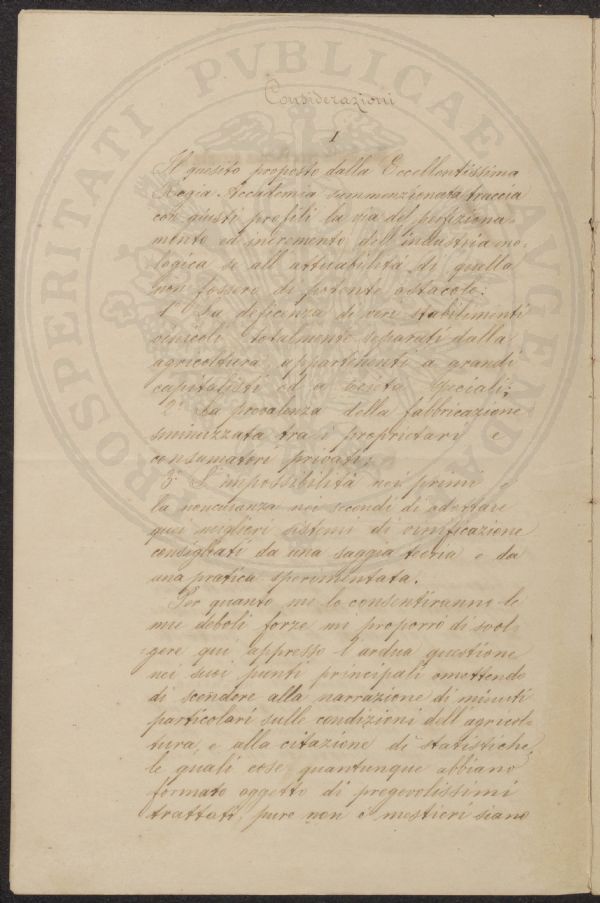 Considerazioni
I
Il quesito proposto dalla Eccellentissima
Regia Accademia summenzionata traccia
con giusti profili la via del perfeziona-
mento ed incremento dell'industria eno-
logica se all'attuabilità di quella
non fossero di potente ostacolo:
1° La deficenza di veri stabilimenti
vinicoli totalmente separati dalla
agricoltura appartenenti a grandi
capitalisti od a Società speciali;
2° La prevalenza della fabbricazione
sminuzzata tra i proprietari e
consumatori privati;
3° L'impossibilità nei primi e
la noncuranza nei secondi di adottare
quei migliori sistemi di vinificazione
consigliati da una saggia teoria e da
una pratica sperimentata.
Per quanto me lo consentiranno le
mie deboli forze mi proporrò di svol-
gere qui appresso l'ardua questione
nei suoi punti principali omettendo
di scendere alla narrazione di minuti
particolari sulle condizioni dell'agricol-
tura, e alla citazione di statistiche,
le quali cose quantunque abbiano
formato oggetto di pregevolissimi
trattati, pure non è mestieri siano
PROSPERITATI PVBLICAE AVGENDAE